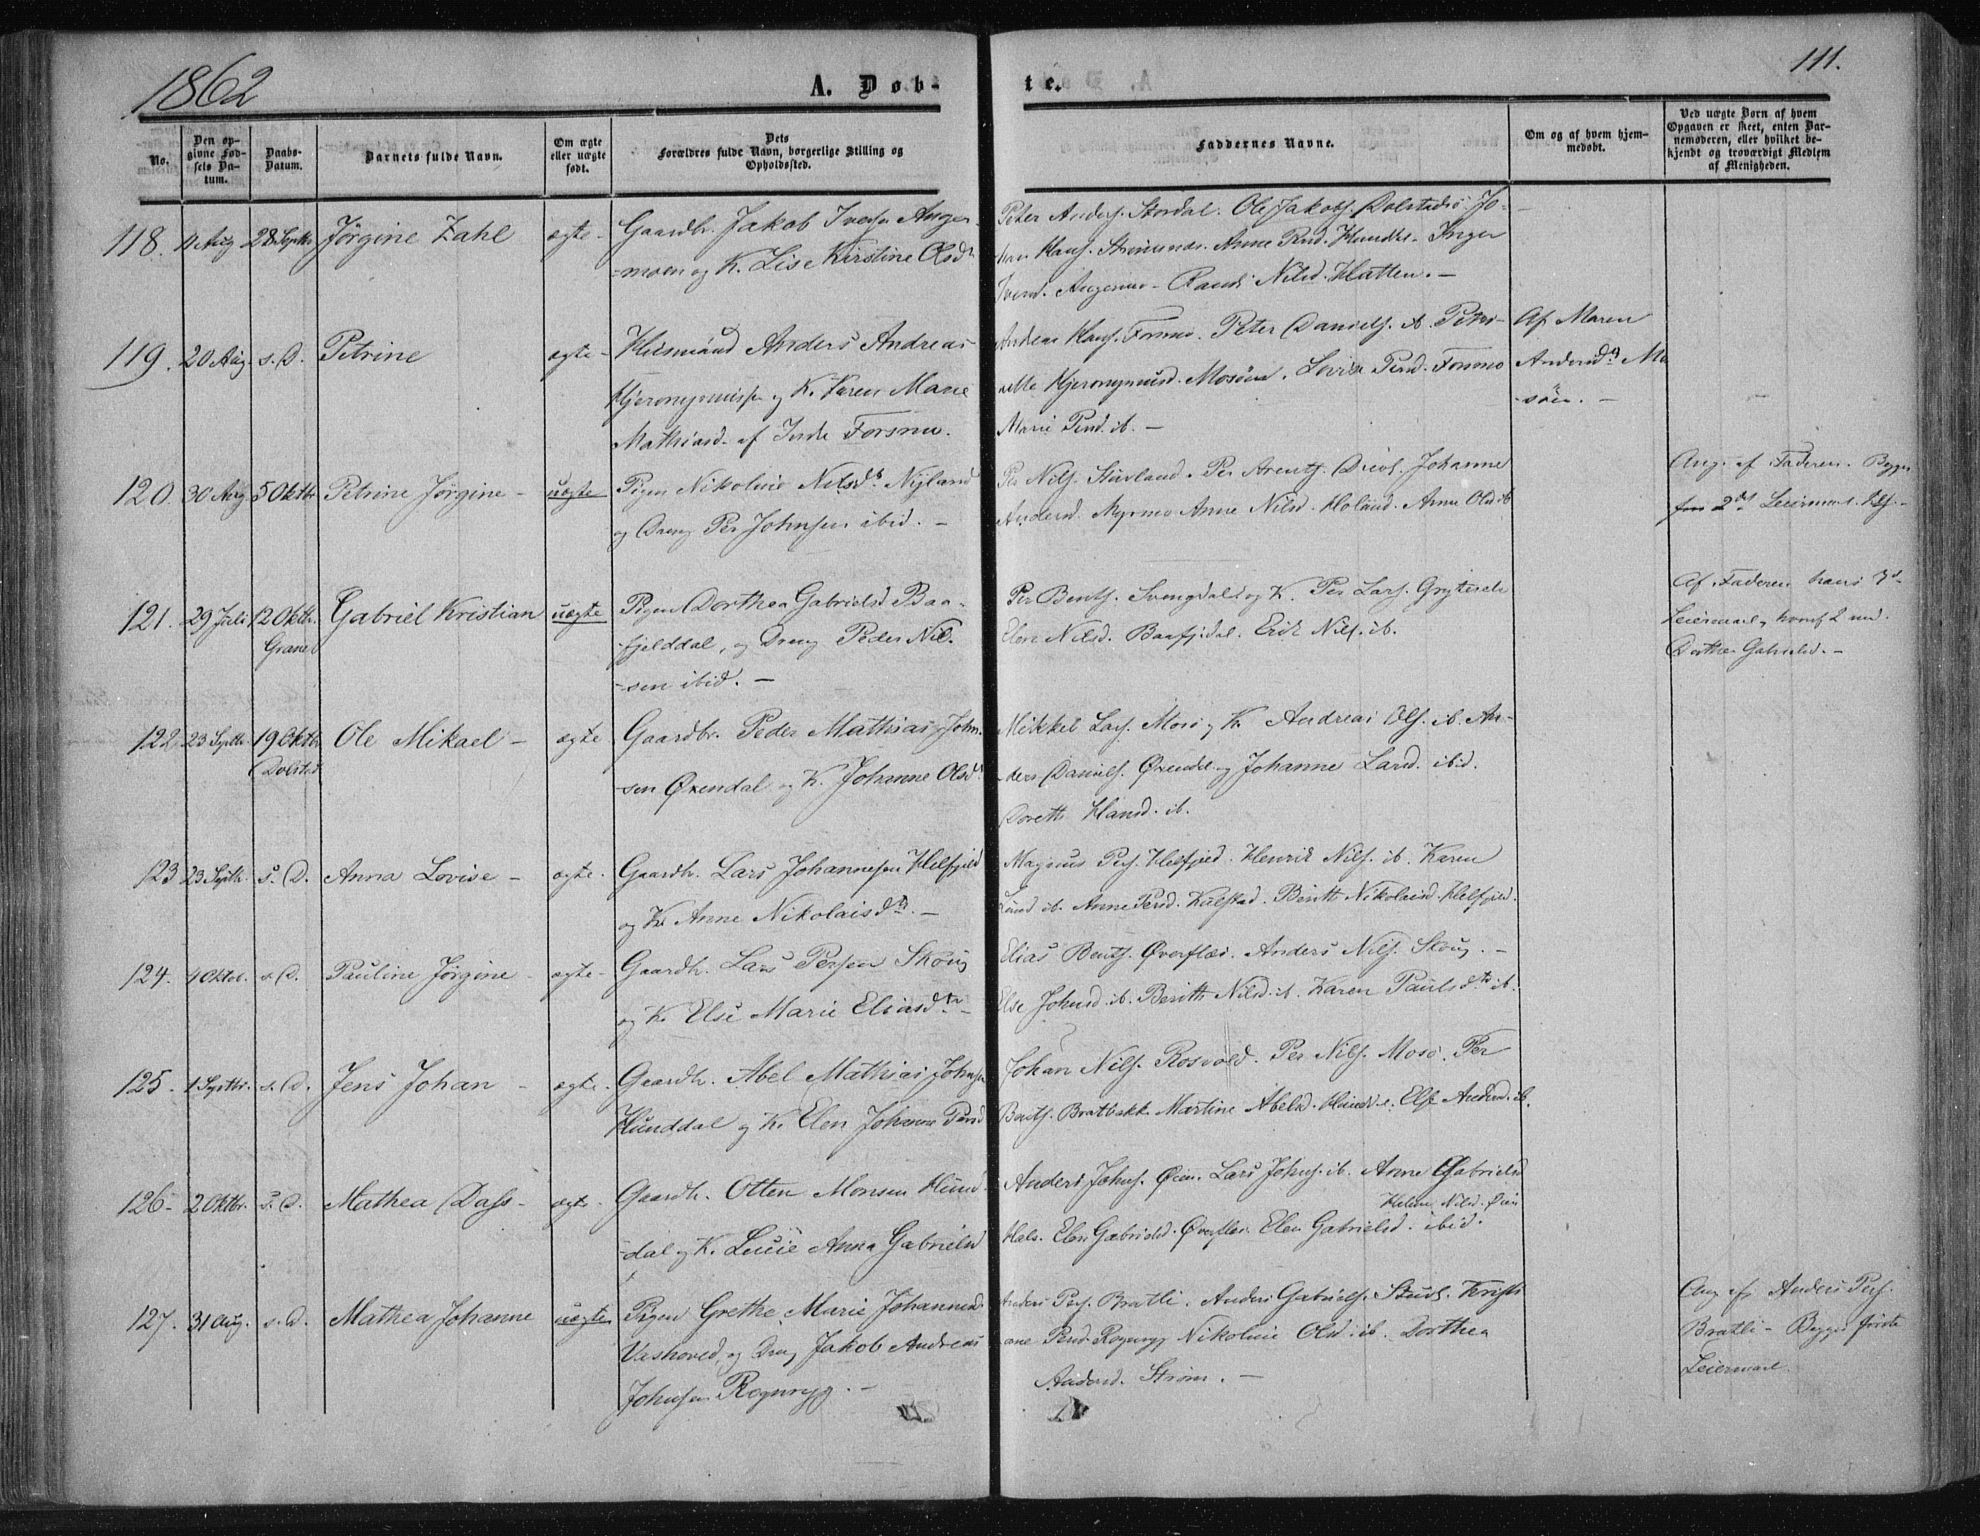 1862
A. Døb-
te.
111.
No.
Den op-
givne Fød-
sels Da-
tum.
Daabs-
Datum.
Barnets fulde Navn.
Om ægte
eller uægte
født.
Dets
Forældres fulde Navn, borgerlige Stilling og
Opholdssted.
Faddernes Navne.
Om og af hvem hjem-
medøbt.
Ved uægte Børn af hvem
Opgaven er skeet, enten Bar-
nemoderen, eller hvilket be-
kjendt og troværdigt Medlem
af Menigheden.
118. 11 Aug 28 Septbr Jørgine Zahl ægte- Gaardbr. Jakob Ivers. Anger-
moen og K. Lise Kirstine Olsdr
Peter Anders. Stordal. Ole Jakobs. Dolstadrø. Jo-
han Hans. Anne Persd. Inger
Iversd. Angermo- Randi Nilsd. Hatten. -
119. 20 Aug. s. D. Petrine ægte- Husmand Anders Andreas
Hjeronymussen og K. Karen Marie
Mathiasd. af Indre Forsmo.
Andreas Hans. Forsmo. Peter Daniels. ib. Petri-
Hjeronymusd. Mosøen. Lovise Persd. Forsmo
Marie Persd. ib. -
Af Maren
Andersdr Mo
søen. -
120. 30 Aug 5 Oktbr Petrine Jørgine- uægte Pigen Nikoline Nilsdr Nyland
og Dreng Per Johnsen ibid. -
Per Nils. Stuvland. Per Arents. Johanne
Andersd. Myrmo Anne Nilsd. Holand. Anne Olsd ib
Ang. af Faderen. Begges
2det Leiermaal.
121. 29 Juli 12 Oktbr. Grane Gabriel Kristian uægte Pigen Dorthea Gabrielsd Baa-
fjelddal, og Dreng Peder Nil-
sen ibid. -
Per Bents. Svengdal og K. Per Lars.
Elen Nilsd. Baafjeldal. Erik Nils. ib.
Af Faderen hans 3d
Leiermaal, hvoraf 2 med
Dorthea Gabrielsd. -
122. 23 Septbr. 19 Oktbr Dolstad Ole Mikael- ægte Gaardbr. Peder Mathias John-
sen Øxendal og K. Johanne Olsdr
Mikkel Lars. Mosø og K. Andreas Ols. ib. An-
ders Daniels. Øxendal og Johanne Larsd. ibid.
Doreth Hansd. ib.
123 23 Septbr. s. D. Anna Lovise- ægte- Gaardbr. Lars Johannesen Helfjeld
og K. Anne Nikolaisdtr. -
Magnus Pers. Helfjeld. Henrik Nils. ib. Karen
Lund ib. Anne Persd. Kulstad. Birith Nikolaisd. Helfjeld.
124. 4 Oktob. s. D. Pauline Jørgine- ægte- Gaardbr. Lars Persen Skoug
og K. Else Marie Eliasdtr-
Elias Bents. Øverflæs. Anders Nils. Skoug. -
Else Johnsd. ib. Berith Nilsd. ib. Karen Paulsdtr ib.
125. 1 Septbr. s. D. Jens Johan- ægte- Gaardbr. Abel Mathias Johnsen
Hunddal og K. Elen Johanna Persd
Johan Nils. Rosvold. Per Nils. Mosø. Per
Bents. Bratbakk. Martine Abelsd. Hunddal. Else Andersd. ib.
126- 2 Oktbr. s. D. Mathea Dass- ægte- Gaardbr. Otten Monsen Hund
dal og K. Lucie Anna Gabrielsd
Anders Johns. Øien. Lars Johns. ib. Anne Gabrielsd
Helene Nilsd. Øien
Hals. Elen Gabrielsd. Øverflæs. Elen Gabrielsd. ibid.
127. 31 Aug. s. D. Mathea Johanne uægte Pigen Grethe Marie Johannesd
Vashoved, og Dreng Jakob Andreas
Johnsen Rognryg. -
Anders Pers. Bratli. Anders Gabriels. Stuvl. Kristi
ane Persd. Rognryg Nikoline Olsd. ib. Dorthea
Andersd. Strøm. -
Ang. af Anders Pers.
Bratli- Begges første
Leiermaal.